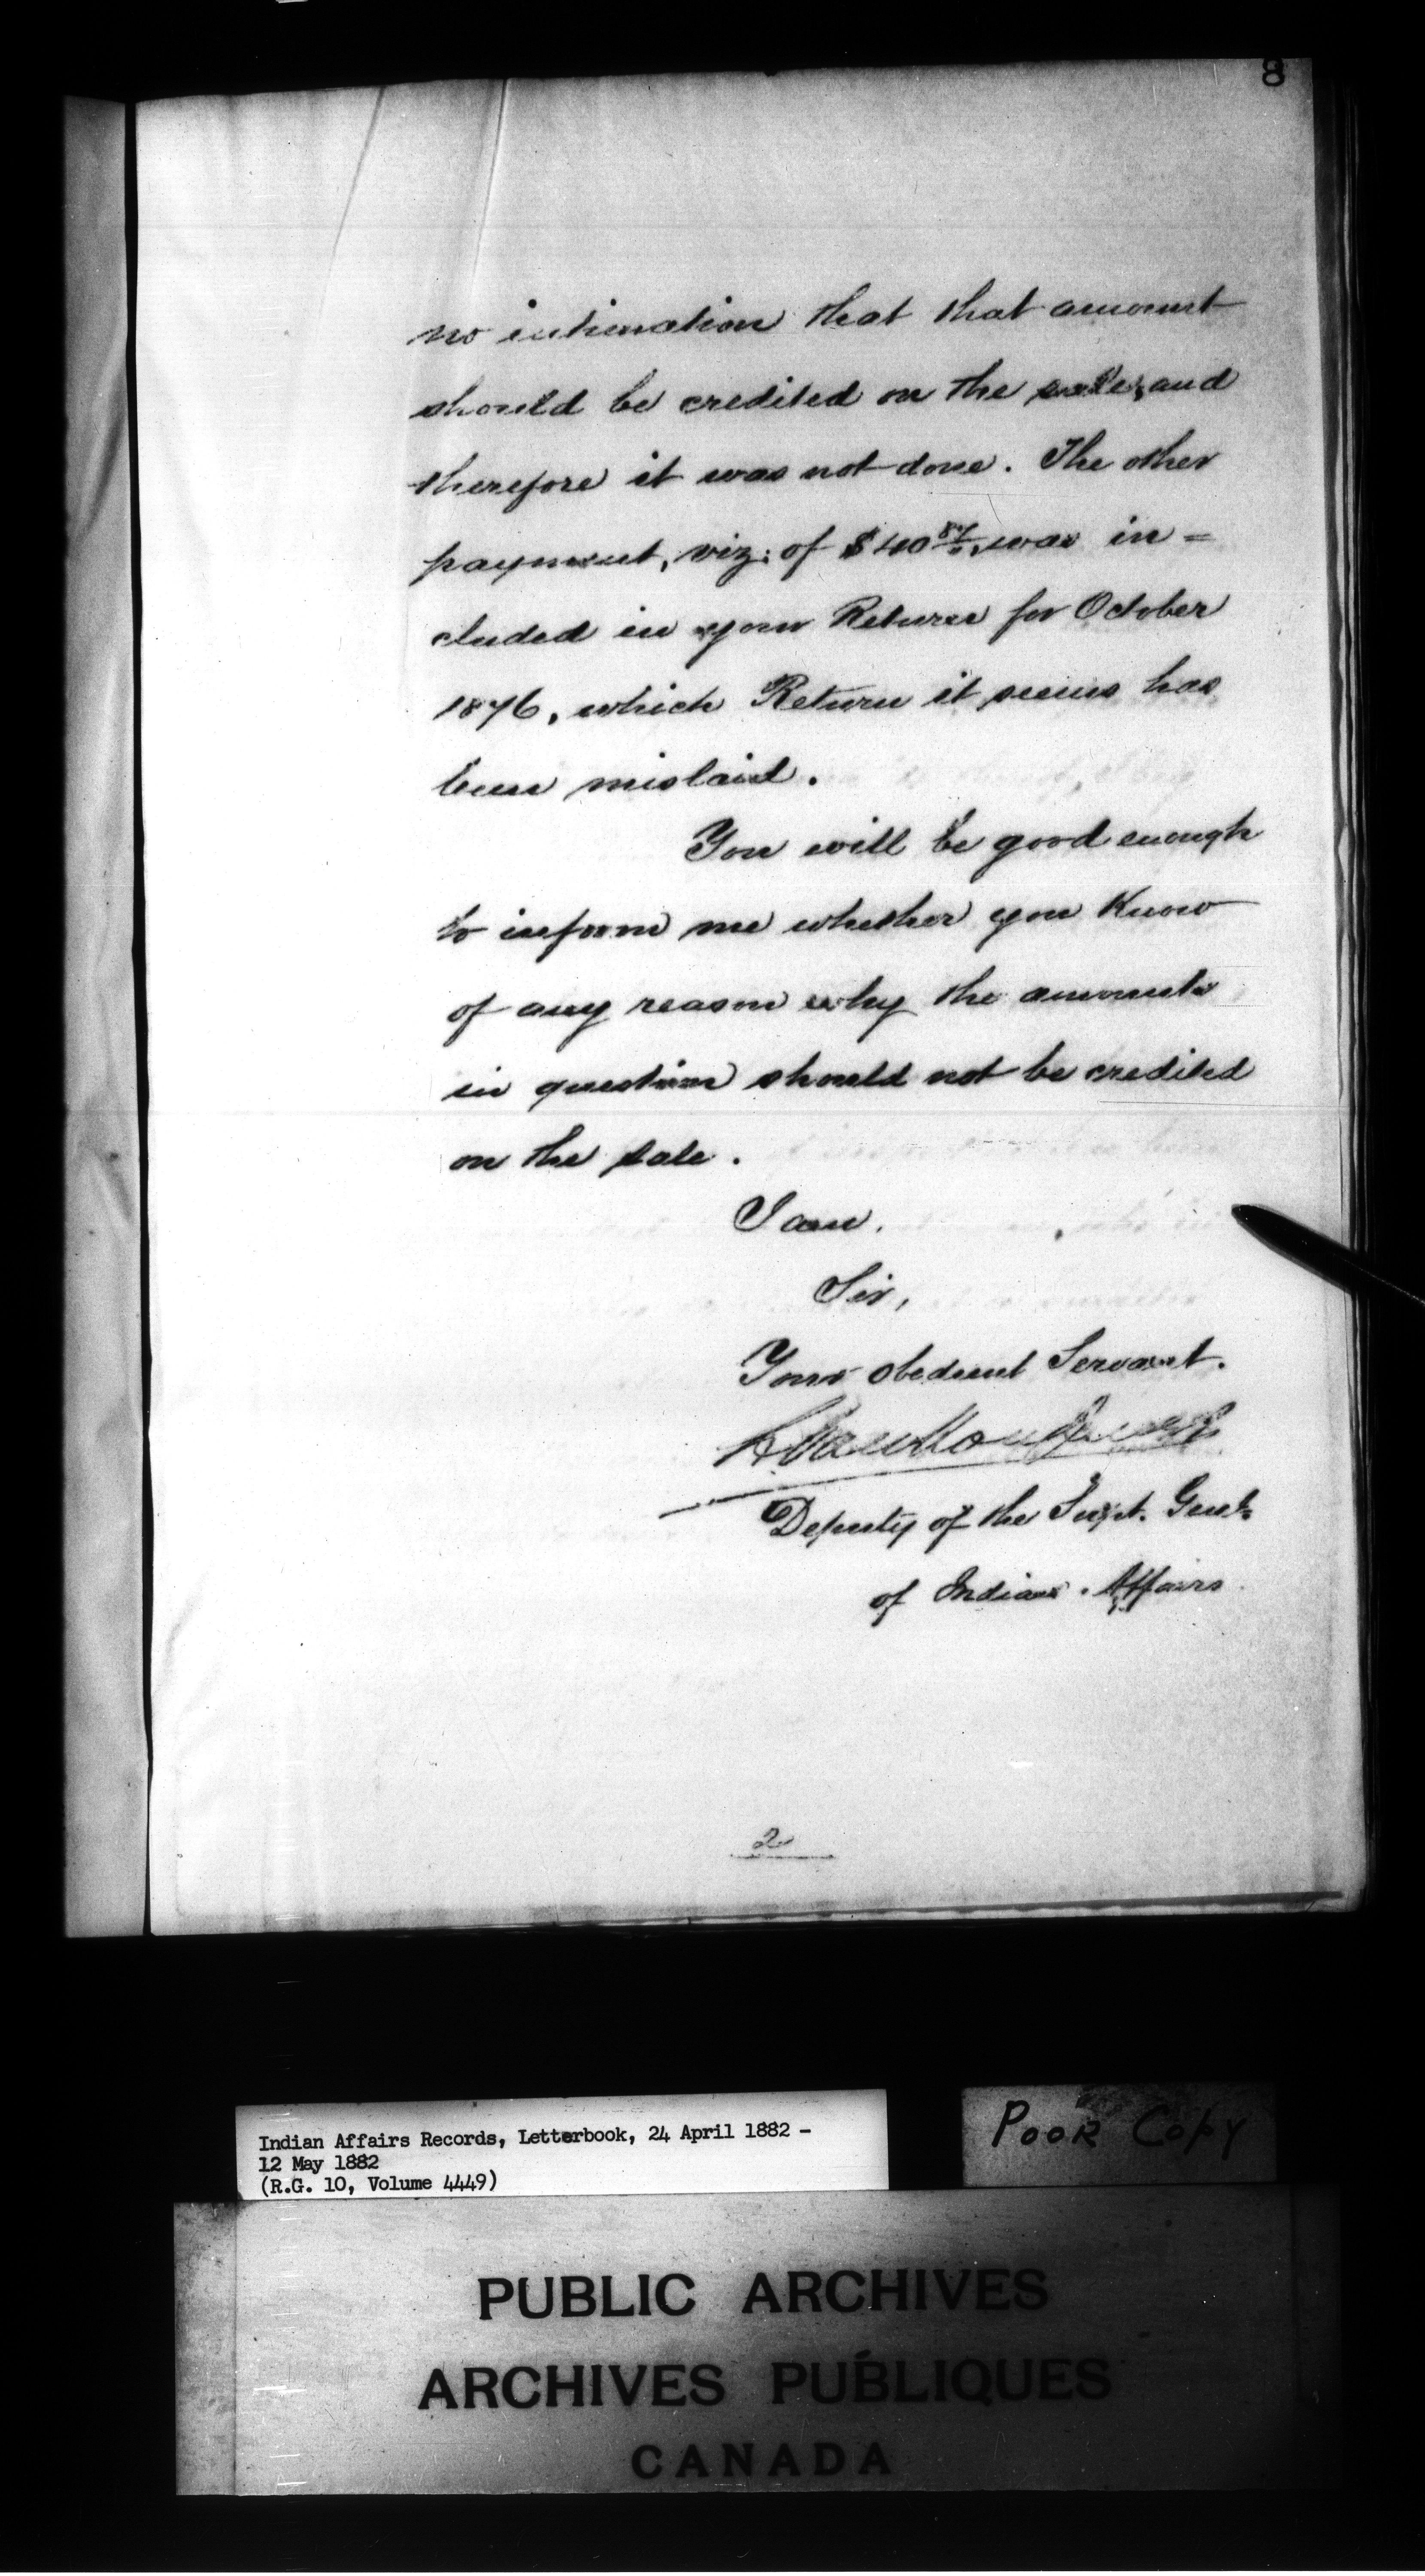 8
no intimation that that amount
should be credited on the sale, and
therefore it was not done. The other
payment, viz: of $40 87/, was in=
cluded in your Return for October
1876, which Return it seems has
been mislaid.
You will be good enough
to inform me whether you know
of any reason why the amounts
in question should not be credited
on the sale.
I am,
Sir,
Your obedient Servant.
L VanKoughnet
Deputy of the Supt. Genl.
of Indian Affairs
2
Indian Affairs Records, Letterbook, 24 April 1882 -
12 May 1882
(R.G. 10, Volume 4449)
POOR COPY
PUBLIC ARCHIVES
ARCHIVES PUBLIQUES
CANADA